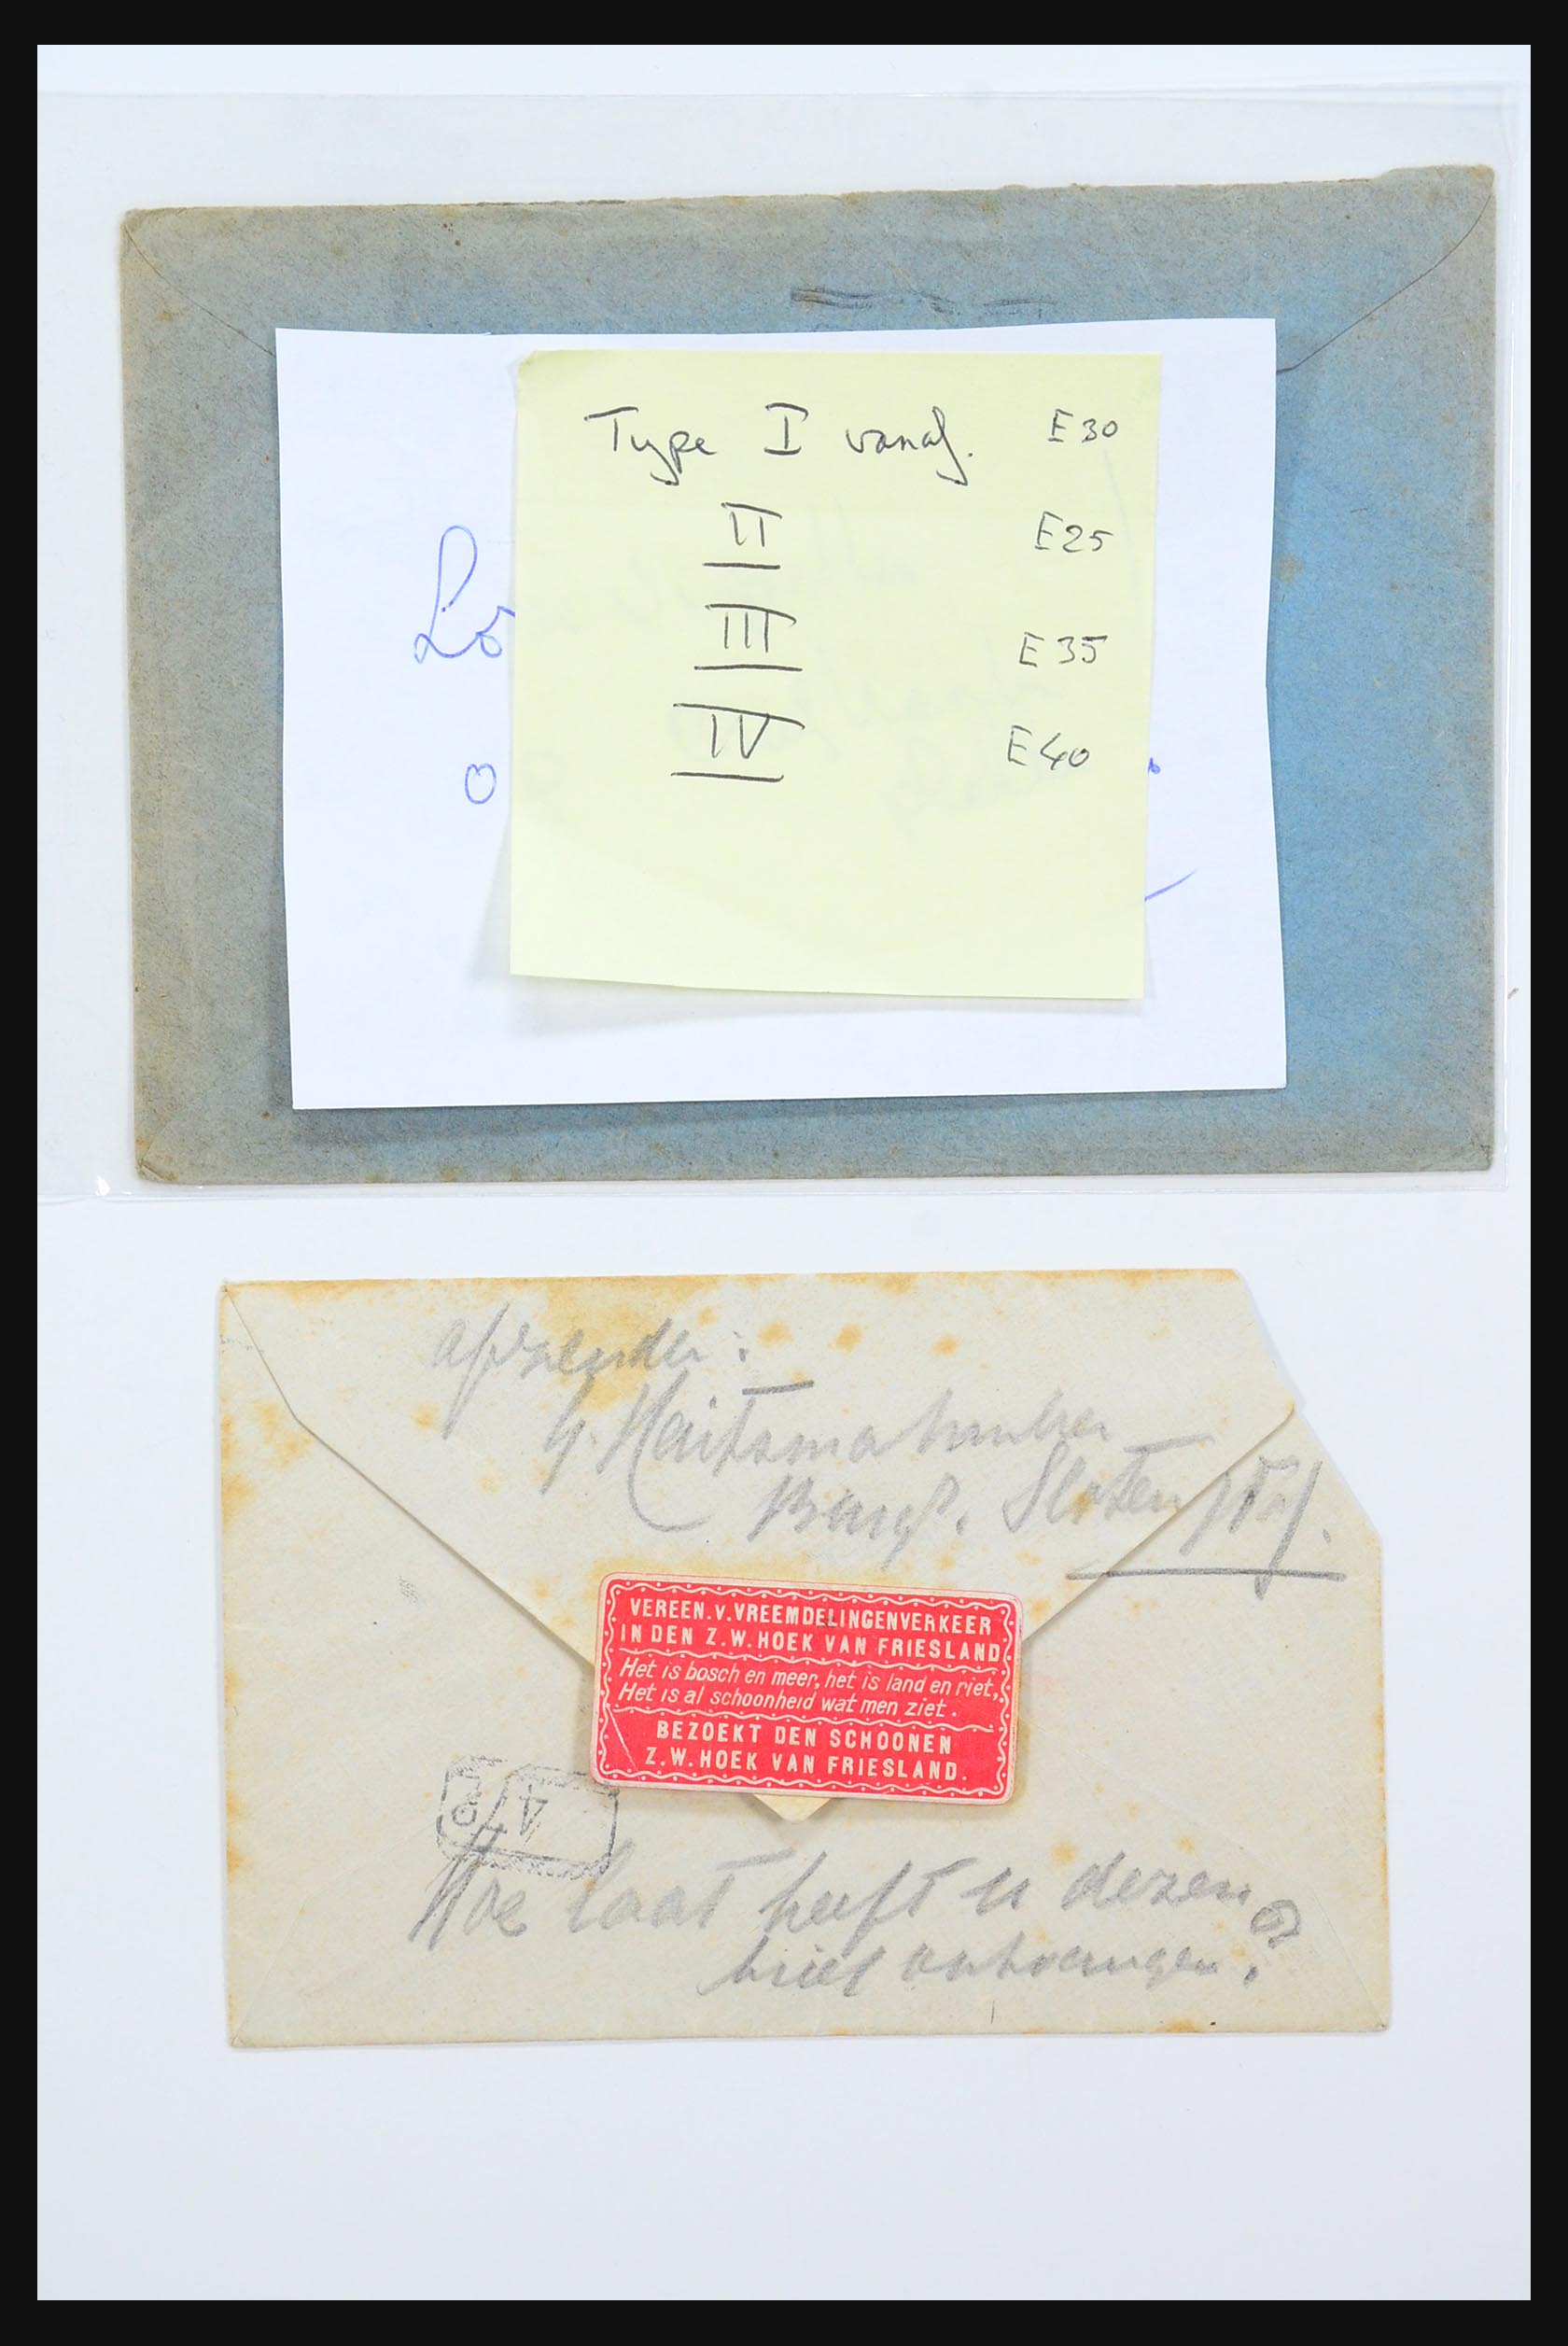 Type I vanaf. E30
II E25
III E35
IV E40
Lo
o
afzender:
Sloten (Fr).
VEREEN.V.VREEMDELINGENVERKEER
IN DEN Z.W.HOEK VAN FRIESLAND
Het is bosch en meer, het is land en riet,
Het is al schoonheid wat men ziet.
BEZOEKT DEN SCHOONEN
Z.W.HOEK VAN FRIESLAND.
Hoe laat heeft u dezen
brief ontvangen?